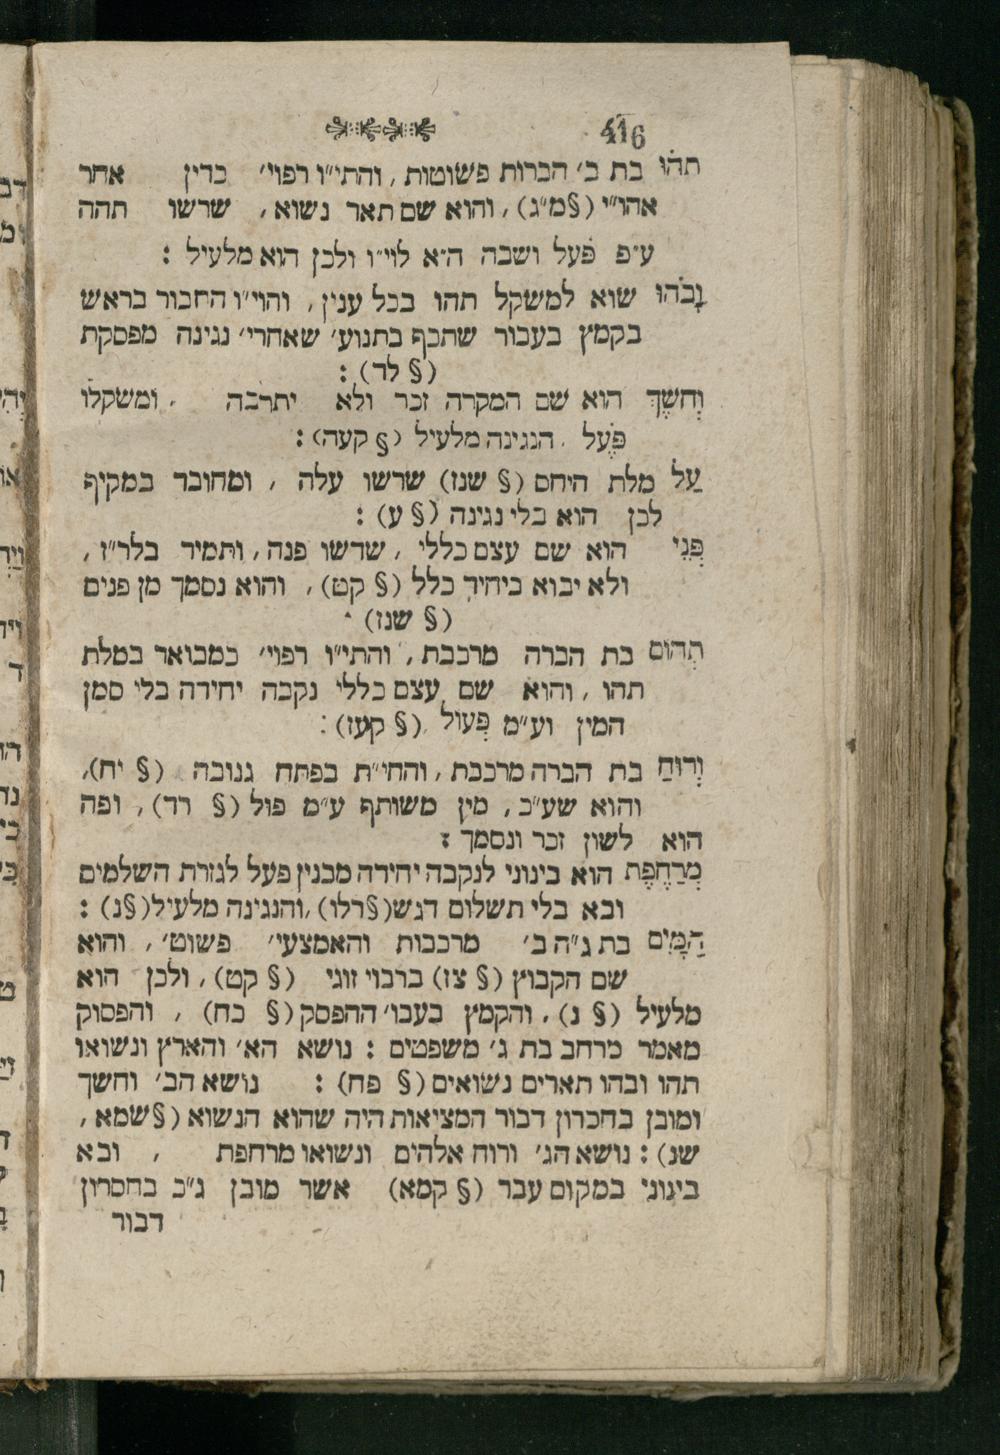 416
תֹהוּ בת ב׳ הברות פשוטות, והתי״ו רפוי׳ כדין אחר
אהו״י (§מ״ג), והוא שם תאר נשוא, שרשו תהה
ע״פ פֹעל ושבה ה״א לוי״ו ולכן הוא מלעיל :
וָבֹהוּ שוא למשקל תהו בכל ענין, והוי״ו החבור בראש
בקמץ בעבור שתכף בתנוע׳ שאחרי׳ נגינה מפסקת
(§ לד) :
וְחֹשֶךְ הוא שם המקרה זכר ולא יתרבה , ומשקלו
פֹּעֶל . הנגינה מלעיל (§ קעה) :
עַל מלת היחס (§ שנז) שרשו עלה , ומחובר במקיף
לכן הוא בלי נגינה (§ ע) :
פְּנֵי הוא שם עצם כללי , שרשו פנה, ותמיד בלר״ז,
ולא יבוא ביחיד כלל (§ קט), והוא נסמך מן פנים
(§ שנז)
תְהוֹם בת הברה מרכבת, והתי״ו רפוי׳ כמבואר במלת
תהו, והוא שם עצם כללי נקבה יחידה בלי סמן
המין וע״מ פְּעוֹל (§ קעז) :
וְרוּחַ בת הברה מרכבת, והחי״ת בפתח גנובה (§ יח),
והוא שע״כ, מין משותף ע״מ פול (§ רד), ופה
הוא לשון זכר ונסמך :
מְרַחֶפֶת הוא בינוני לנקבה יחידה מבנין פעל לגזרת השלמים
ובא בלי תשלום דגש (§רלו), והנגינה מלעיל (§נ) :
הַמָּיִם בת ג״ה ב׳ מרכבות והאמצעי׳ פשוט׳, והוא
שם הקבוץ (§ צז) ברבוי זוגי (§ קט), ולכן הוא
מלעיל (§ נ), והקמץ בעבו׳ ההפסק (§ כח) , והפסוק
מאמר מרחב בת ג׳ משפטים : נושא הא׳ והארץ ונשואו
תהו ובהו תארים נשואים (§ פח) : נושא הב׳ וחשך
ומובן בחסרון דבור המציאות היה שהוא הנשוא (§שמא,
שנ) : נושא הג׳ ורוח אלהים ונשואו מרחפת , ובא
בינוני במקום עבר (§ קמא) אשר מובן ג״כ בחסרון
דבור